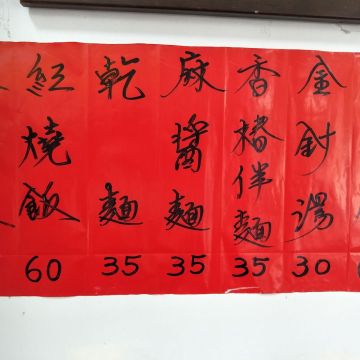 金針湯
30
香椿伴麵
35
麻醬麵
35
乾麵
35
紅燒飯
60